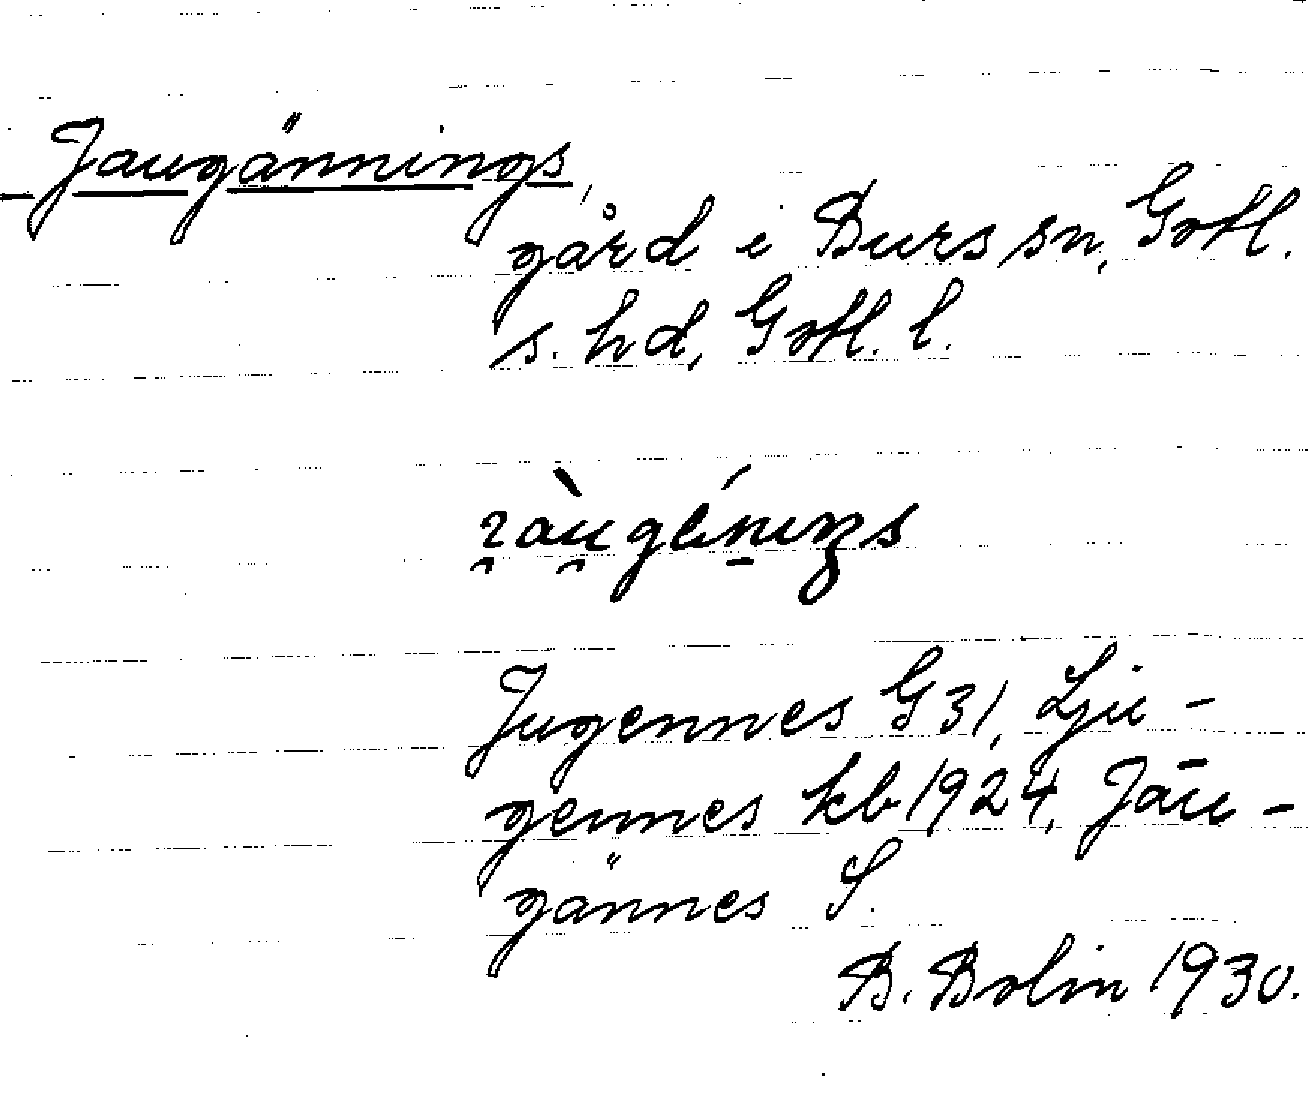 Jaugännings,
gård i Burs sn, Gotl.
s. hd, Gotl. l.
Jugennes G 31, Lju-
gennes kb 1924, Jāu-
gännes S.
B. Bolin 1930.